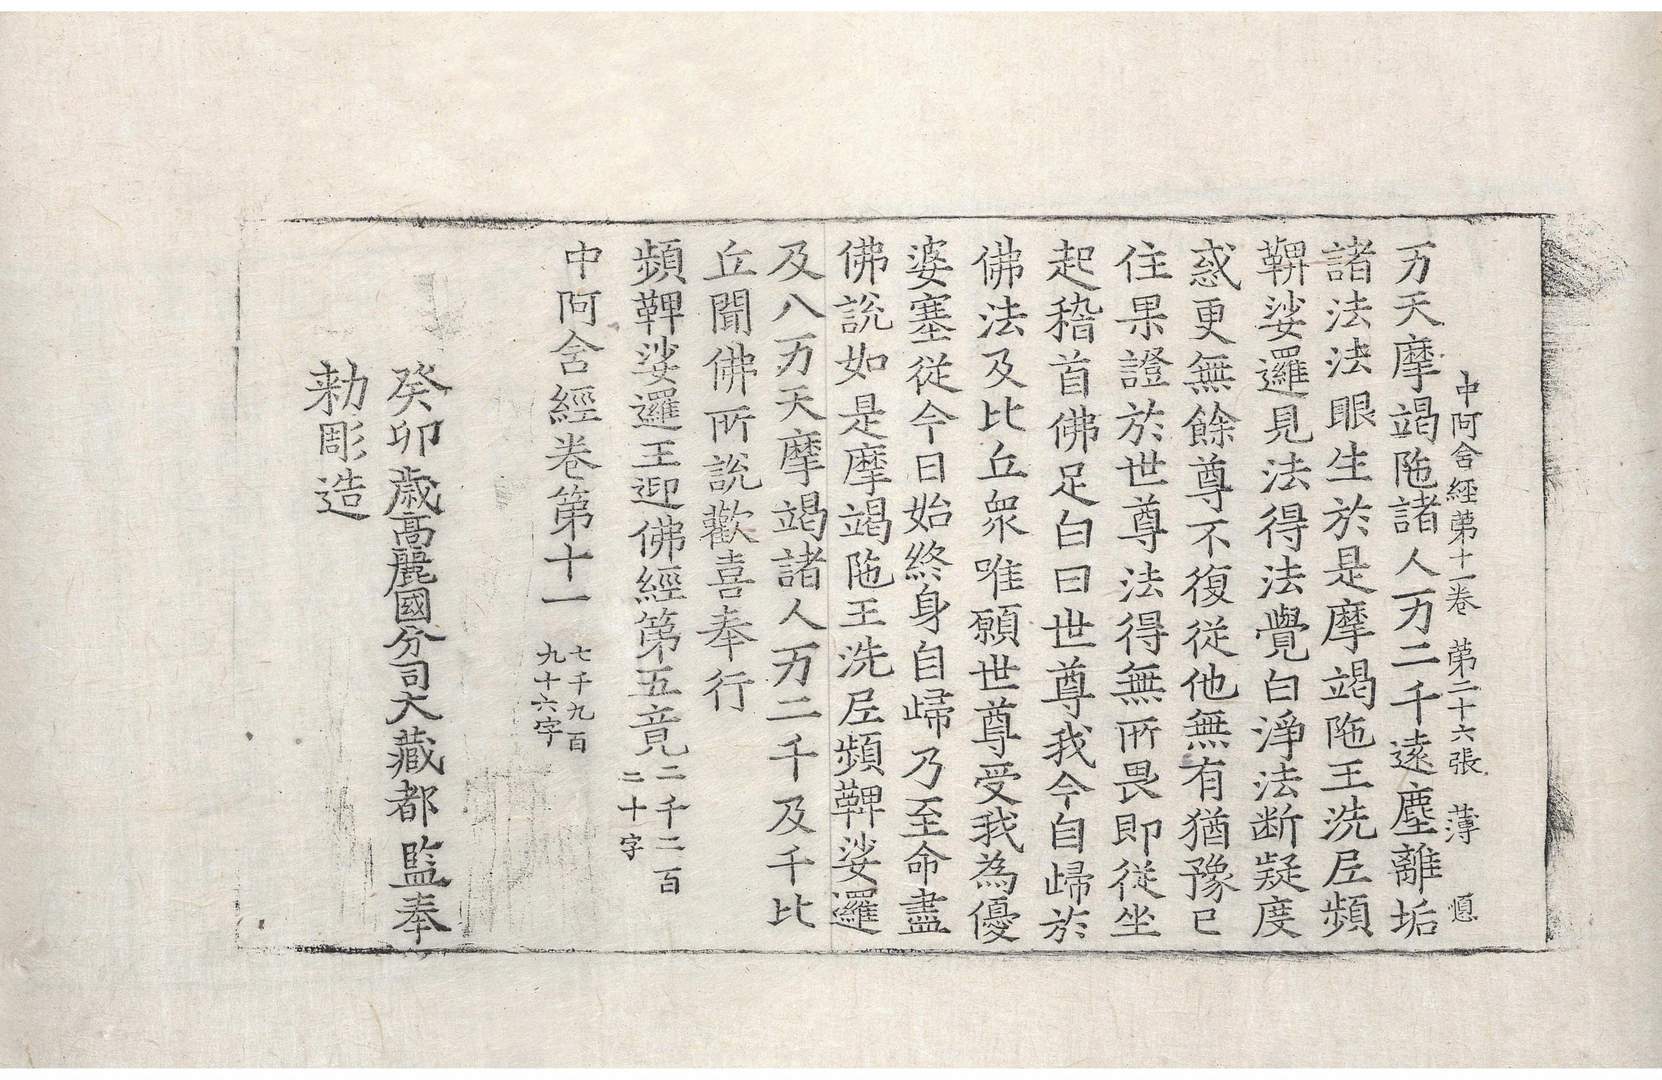 中阿含經第十一卷 第二十六張 薄
万天摩竭陁諸人万二千遠塵離垢
諸法法眼生於是摩竭陁王洗𡰱頻
鞞娑邏見法得法覺白淨法断疑度
惑更無餘尊不復從他無有猶豫已
住果證於世尊法得無所畏即從坐
起稽首佛足白曰世尊我今自歸於
佛法及比丘衆唯願世尊受我為優
婆塞從今日始終身自歸乃至命盡
佛說如是摩竭陁王洗𡰱頻鞞娑邏
及八万天摩竭諸人万二千及千比
丘聞佛所說歡喜奉行
頻鞞娑邏王迎佛經第五竟 二千二百
二十字
中阿含經卷第十一 七千九百
九十六字
癸卯歲高麗國分司大藏都監奉
勑彫造